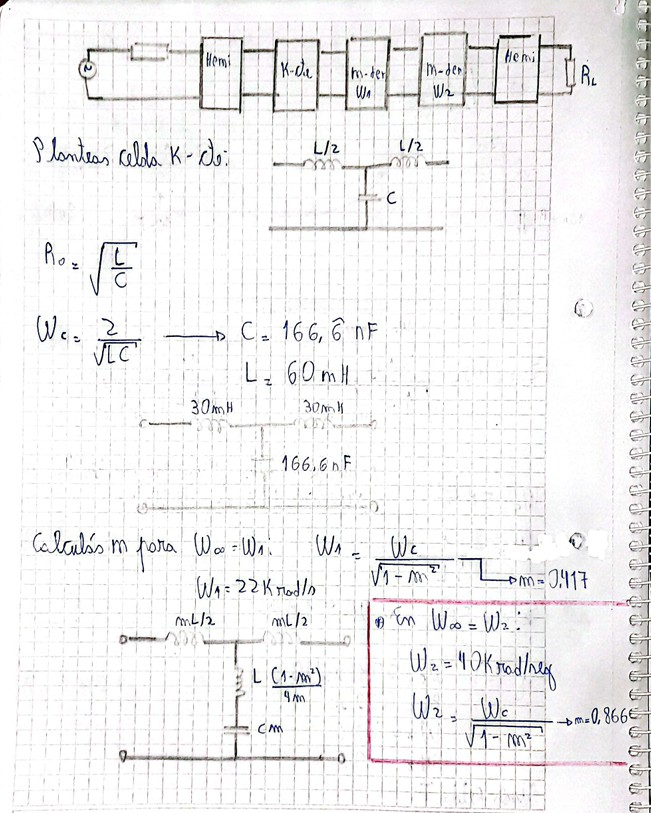 Hemi K-cte m-der W1 m-der W2 Hemi RL
Planteas celda K-cte:
L/2 L/2
C
Ro = √(L/C)
Wc = 2/√(LC) → C = 166,6̂ nF
L = 60mH
30mH 30mH
166,6nF
Calculás m para W∞ = W1: W1 = Wc/√(1-m²) → m = 0,417
W1 = 22Krad/s
mL/2 mL/2
L (1-m²)/4m
Cm
En W∞ = W2:
W2 = 40Krad/seg
W2 = Wc/√(1-m²) → m=0,866